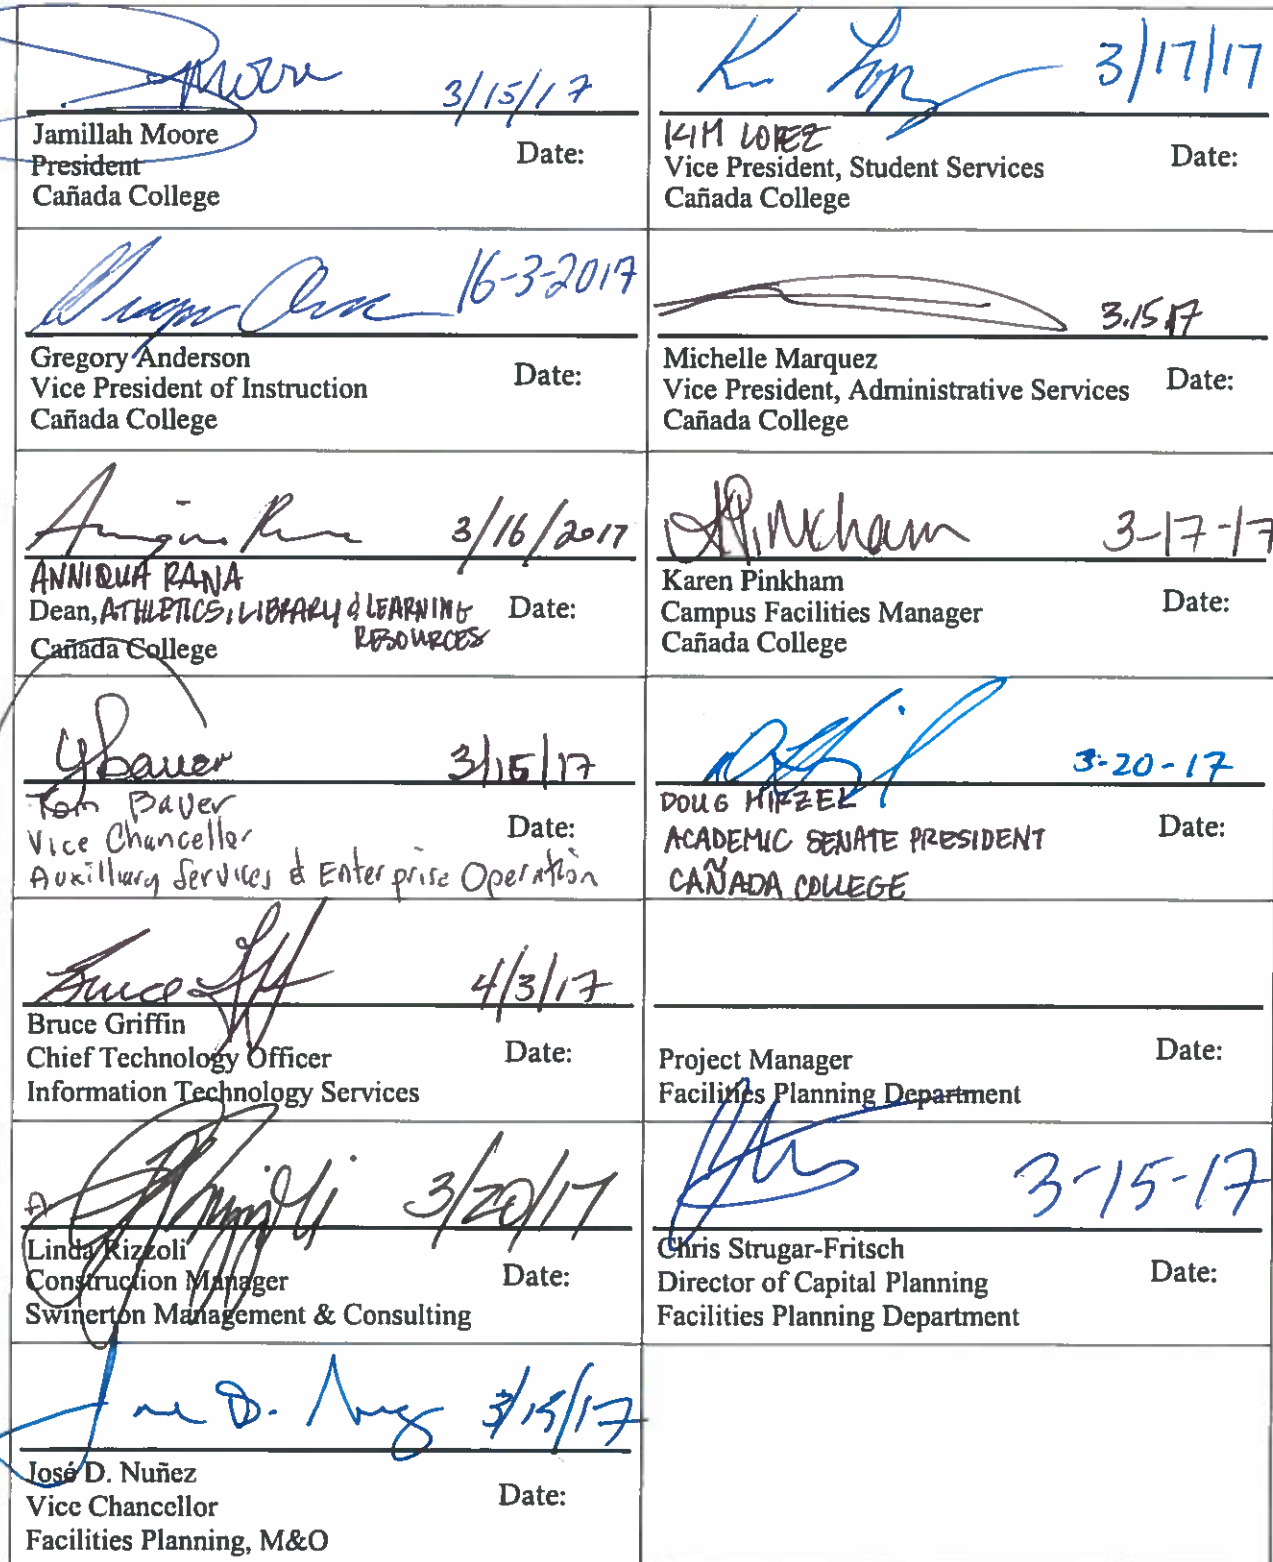 Moore 3/15/17
Jamillah Moore
President
Cañada College
Date:
3/17/17
KIM LOPEZ
Vice President, Student Services
Cañada College
Date:
16-3-2017
Gregory Anderson
Vice President of Instruction
Cañada College
Date:
3.15.17
Michelle Marquez
Vice President, Administrative Services
Cañada College
Date:
3/16/2017
ANNIQUA RANA
Dean, ATHLETICS, LIBRARY & LEARNING
RESOURCES
Cañada College
Date:
Pinkham 3-17-17
Karen Pinkham
Campus Facilities Manager
Cañada College
Date:
Bauer 3/15/17
Tom Bauer
Vice Chancellor
Auxilliary Services & Enterprise Operation
Date:
3-20-17
DOUG HIRZEL
ACADEMIC SENATE PRESIDENT
CAÑADA COLLEGE
Date:
Bruce 4/3/17
Bruce Griffin
Chief Technology Officer
Information Technology Services
Date:
Project Manager
Facilities Planning Department
Date:
3/20/17
Linda Rizzoli
Construction Manager
Swinerton Management & Consulting
Date:
3-15-17
Chris Strugar-Fritsch
Director of Capital Planning
Facilities Planning Department
Date:
3/15/17
José D. Nuñez
Vice Chancellor
Facilities Planning, M&O
Date: